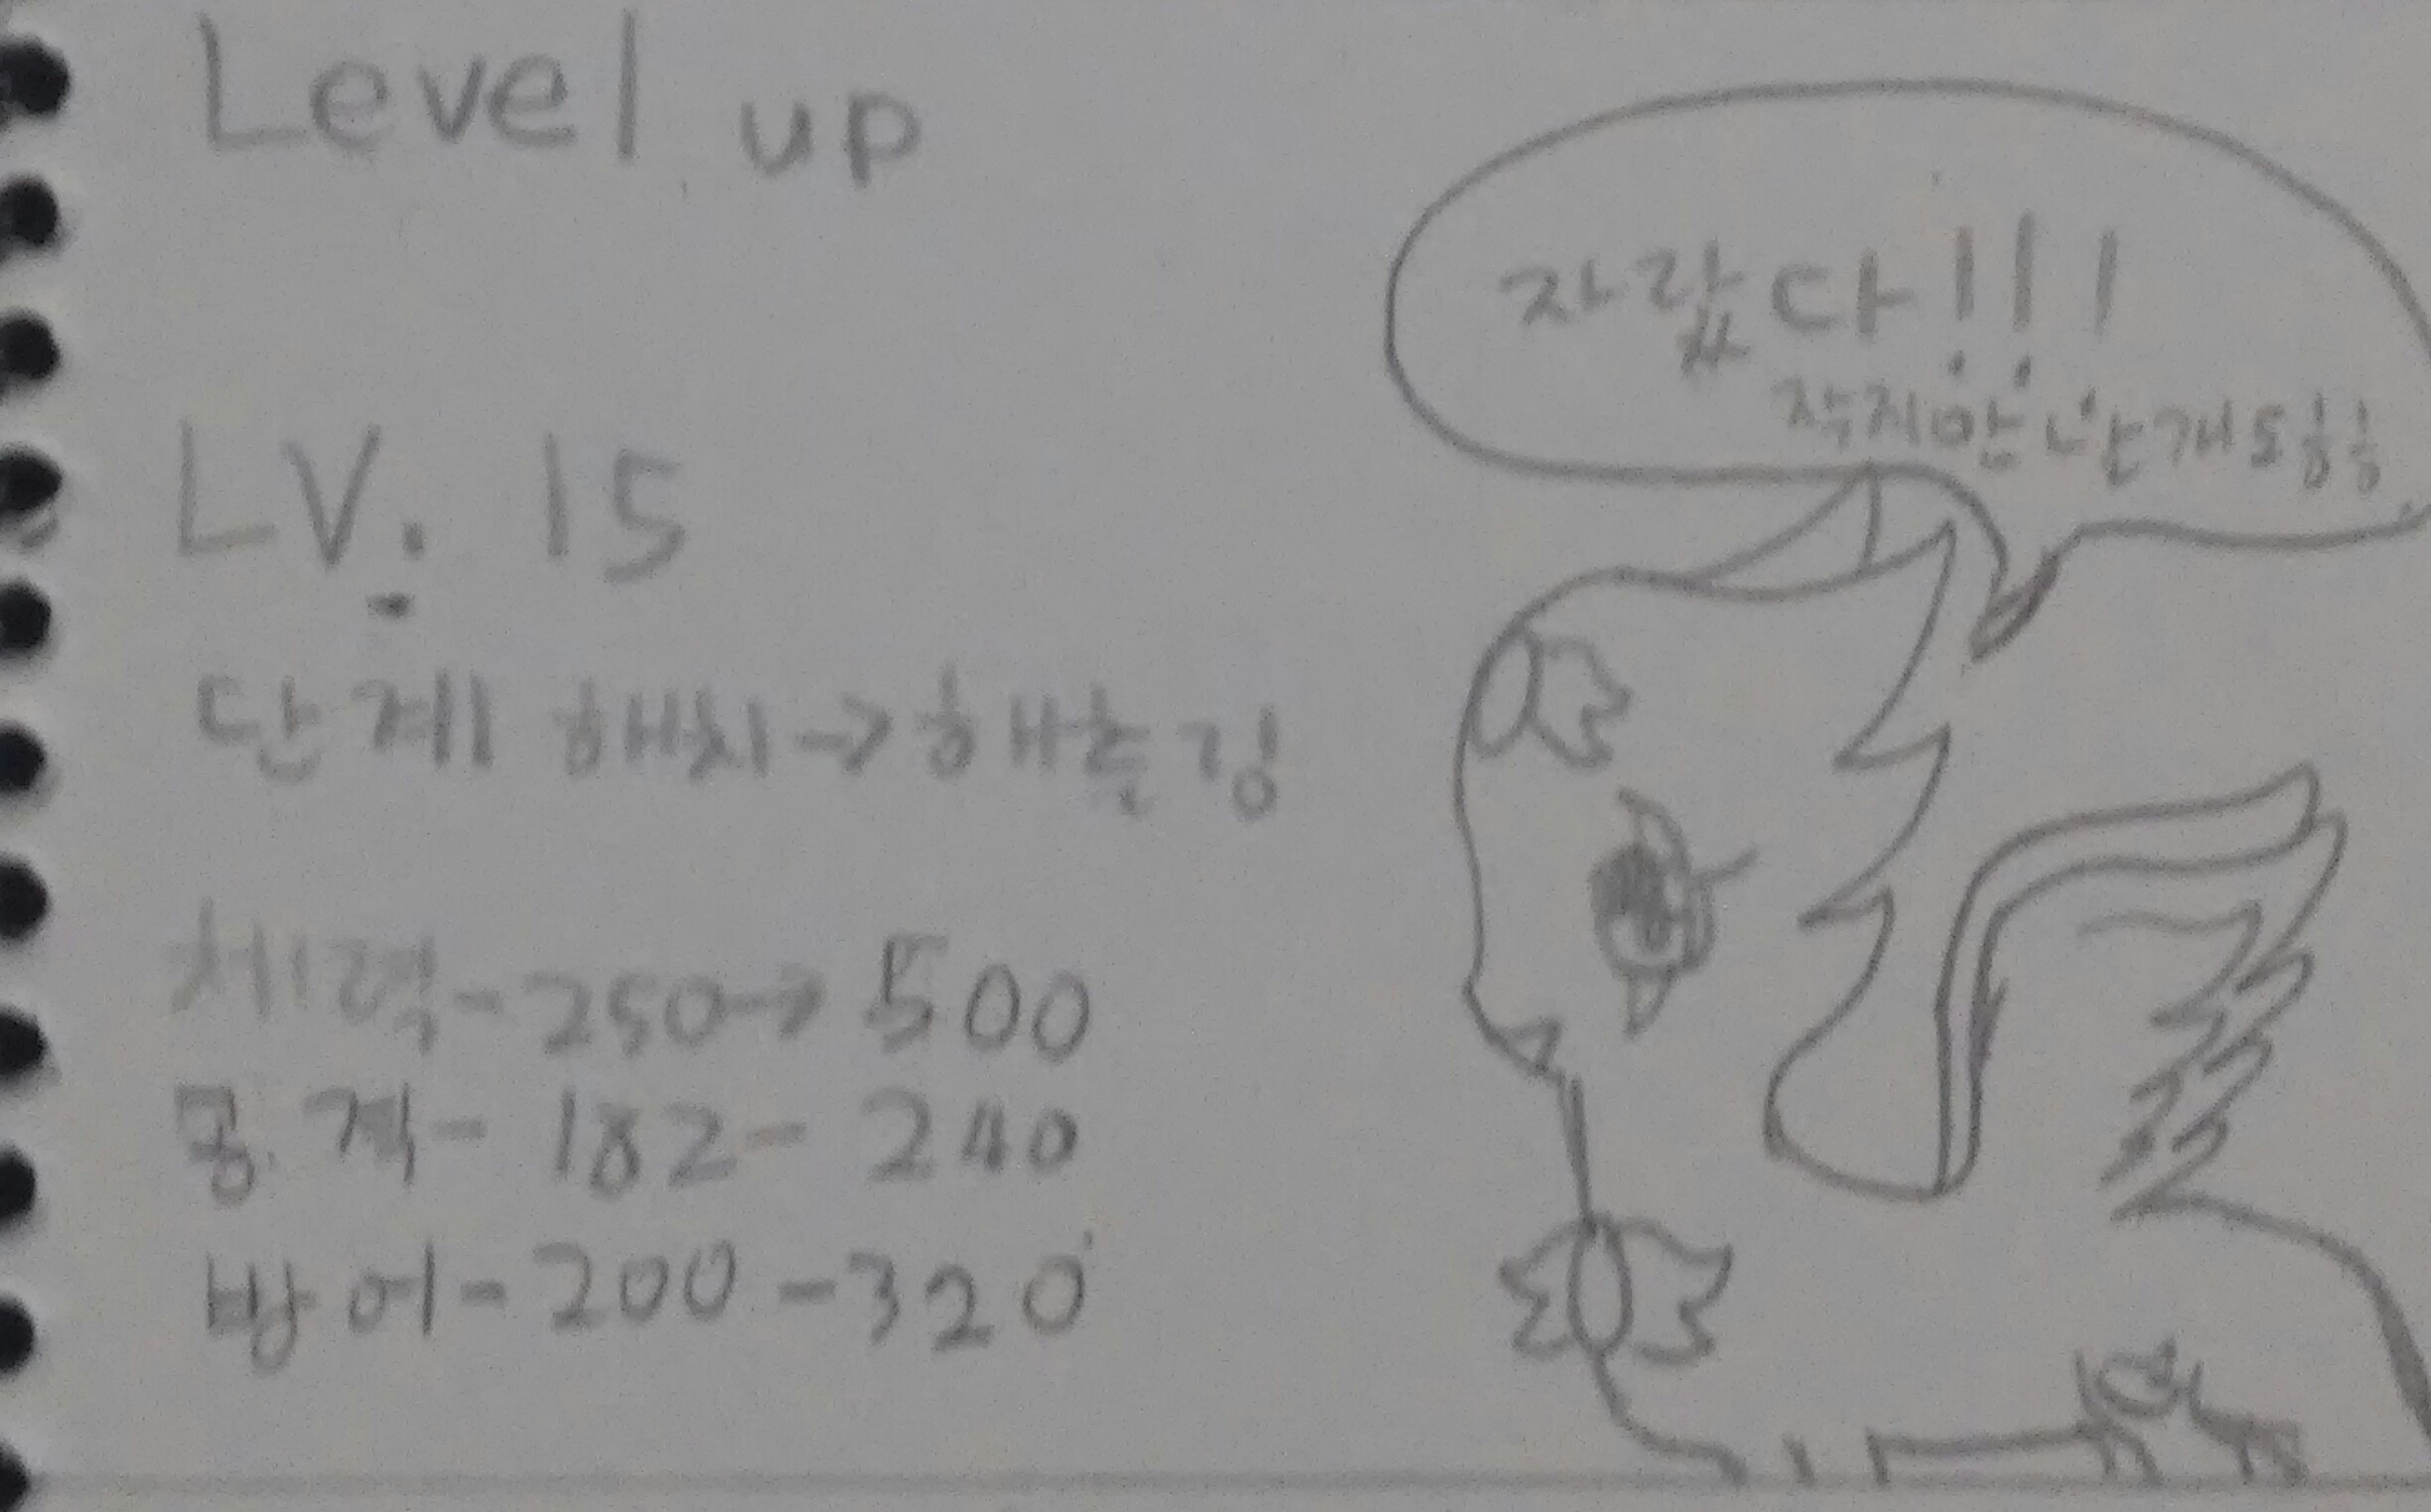 Level up
자랐다!!!
작지만 난개도 흠흠
LV. 15
단계 해치→해츨링
체력-250→500
공격-182-240
방어-200-320